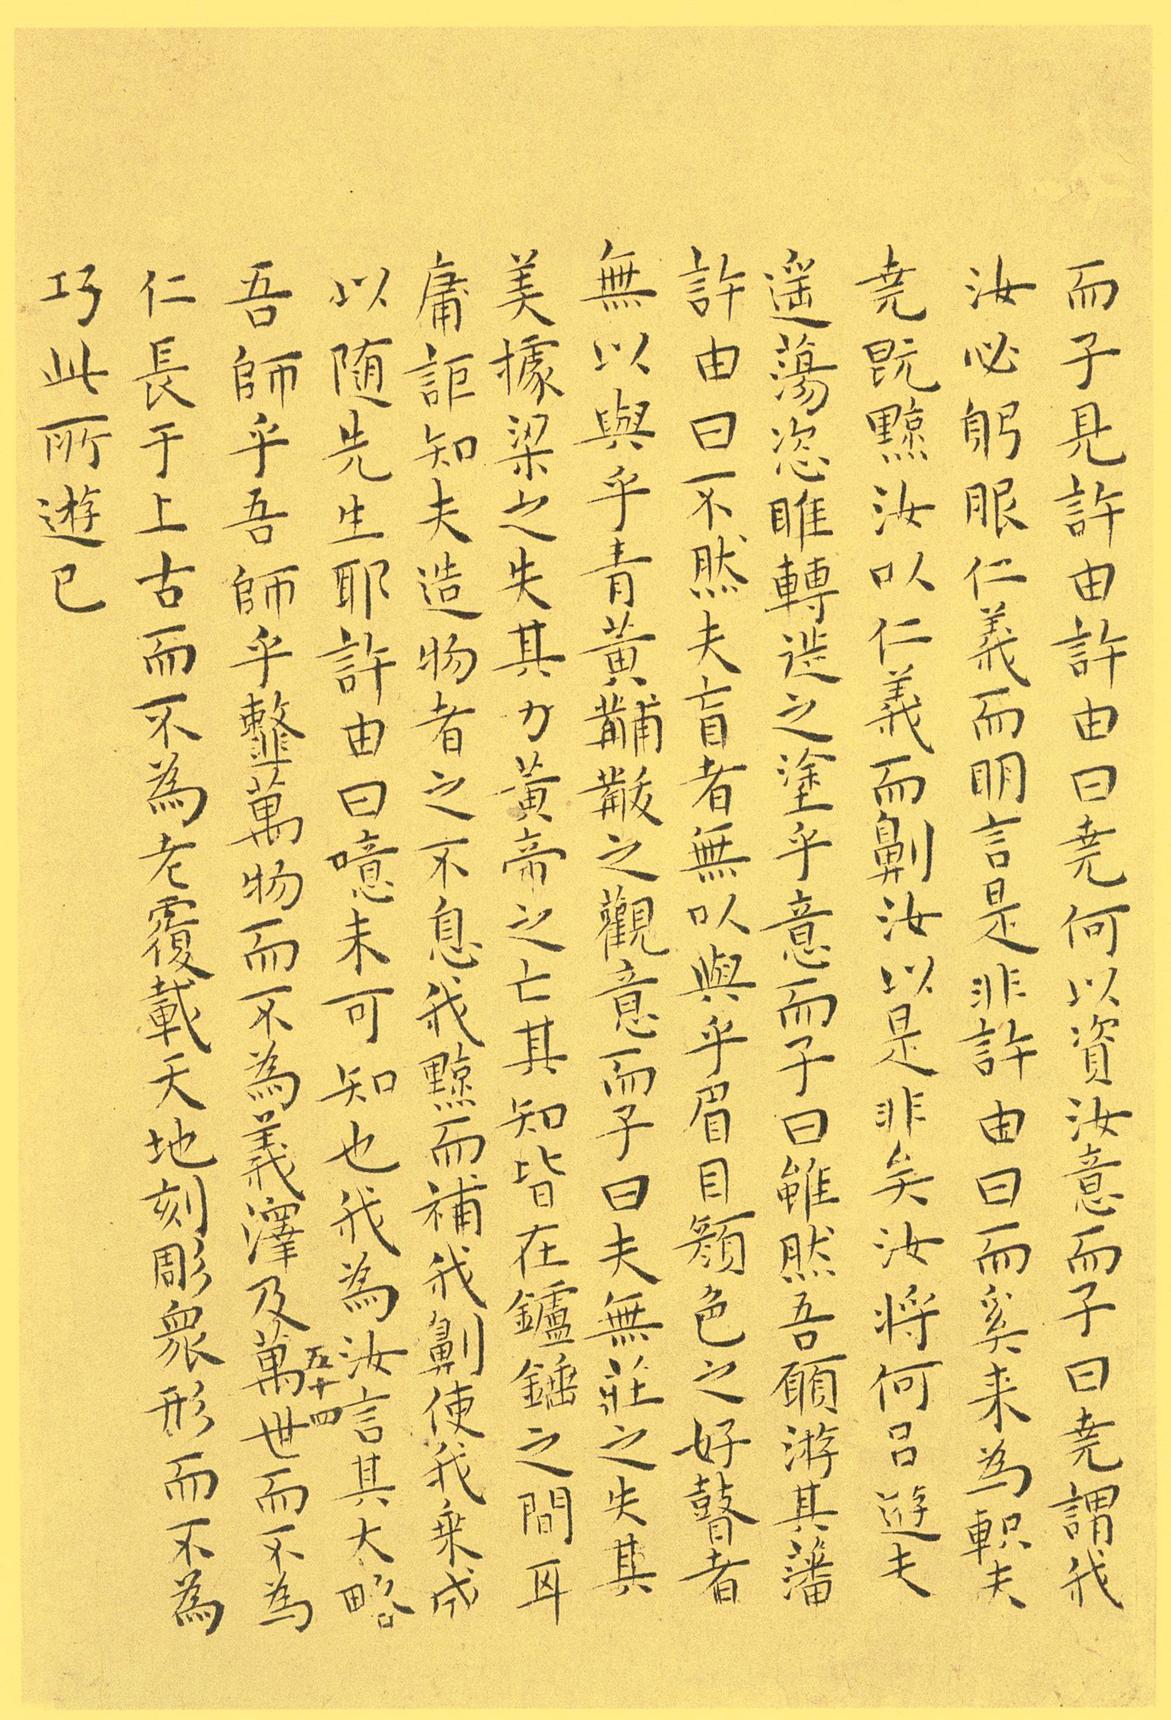 而子見許由許由曰堯何以資汝意而子曰堯謂我
汝必躬服仁義而明言是非許由曰而奚来為軹夫
堯既黥汝以仁義而劓汝以是非矣汝将何以遊夫
遥蕩恣睢轉徙之塗乎意而子曰雖然吾願游其藩
許由曰不然夫盲者無以與乎眉目顏色之好瞽者
無以與乎青黃黼黻之觀意而子曰夫無莊之失其
美據梁之失其力黃帝之亡其知皆在鑪錘之間耳
庸詎知夫造物者之不息我黥而補我劓使我乗成
以随先生耶許由曰噫未可知也我為汝言其大略
吾師乎吾師乎韲萬物而不為義澤及萬世而不為
仁長于上古而不為老覆載天地刻彫衆形而不為
巧此所遊已
五十四